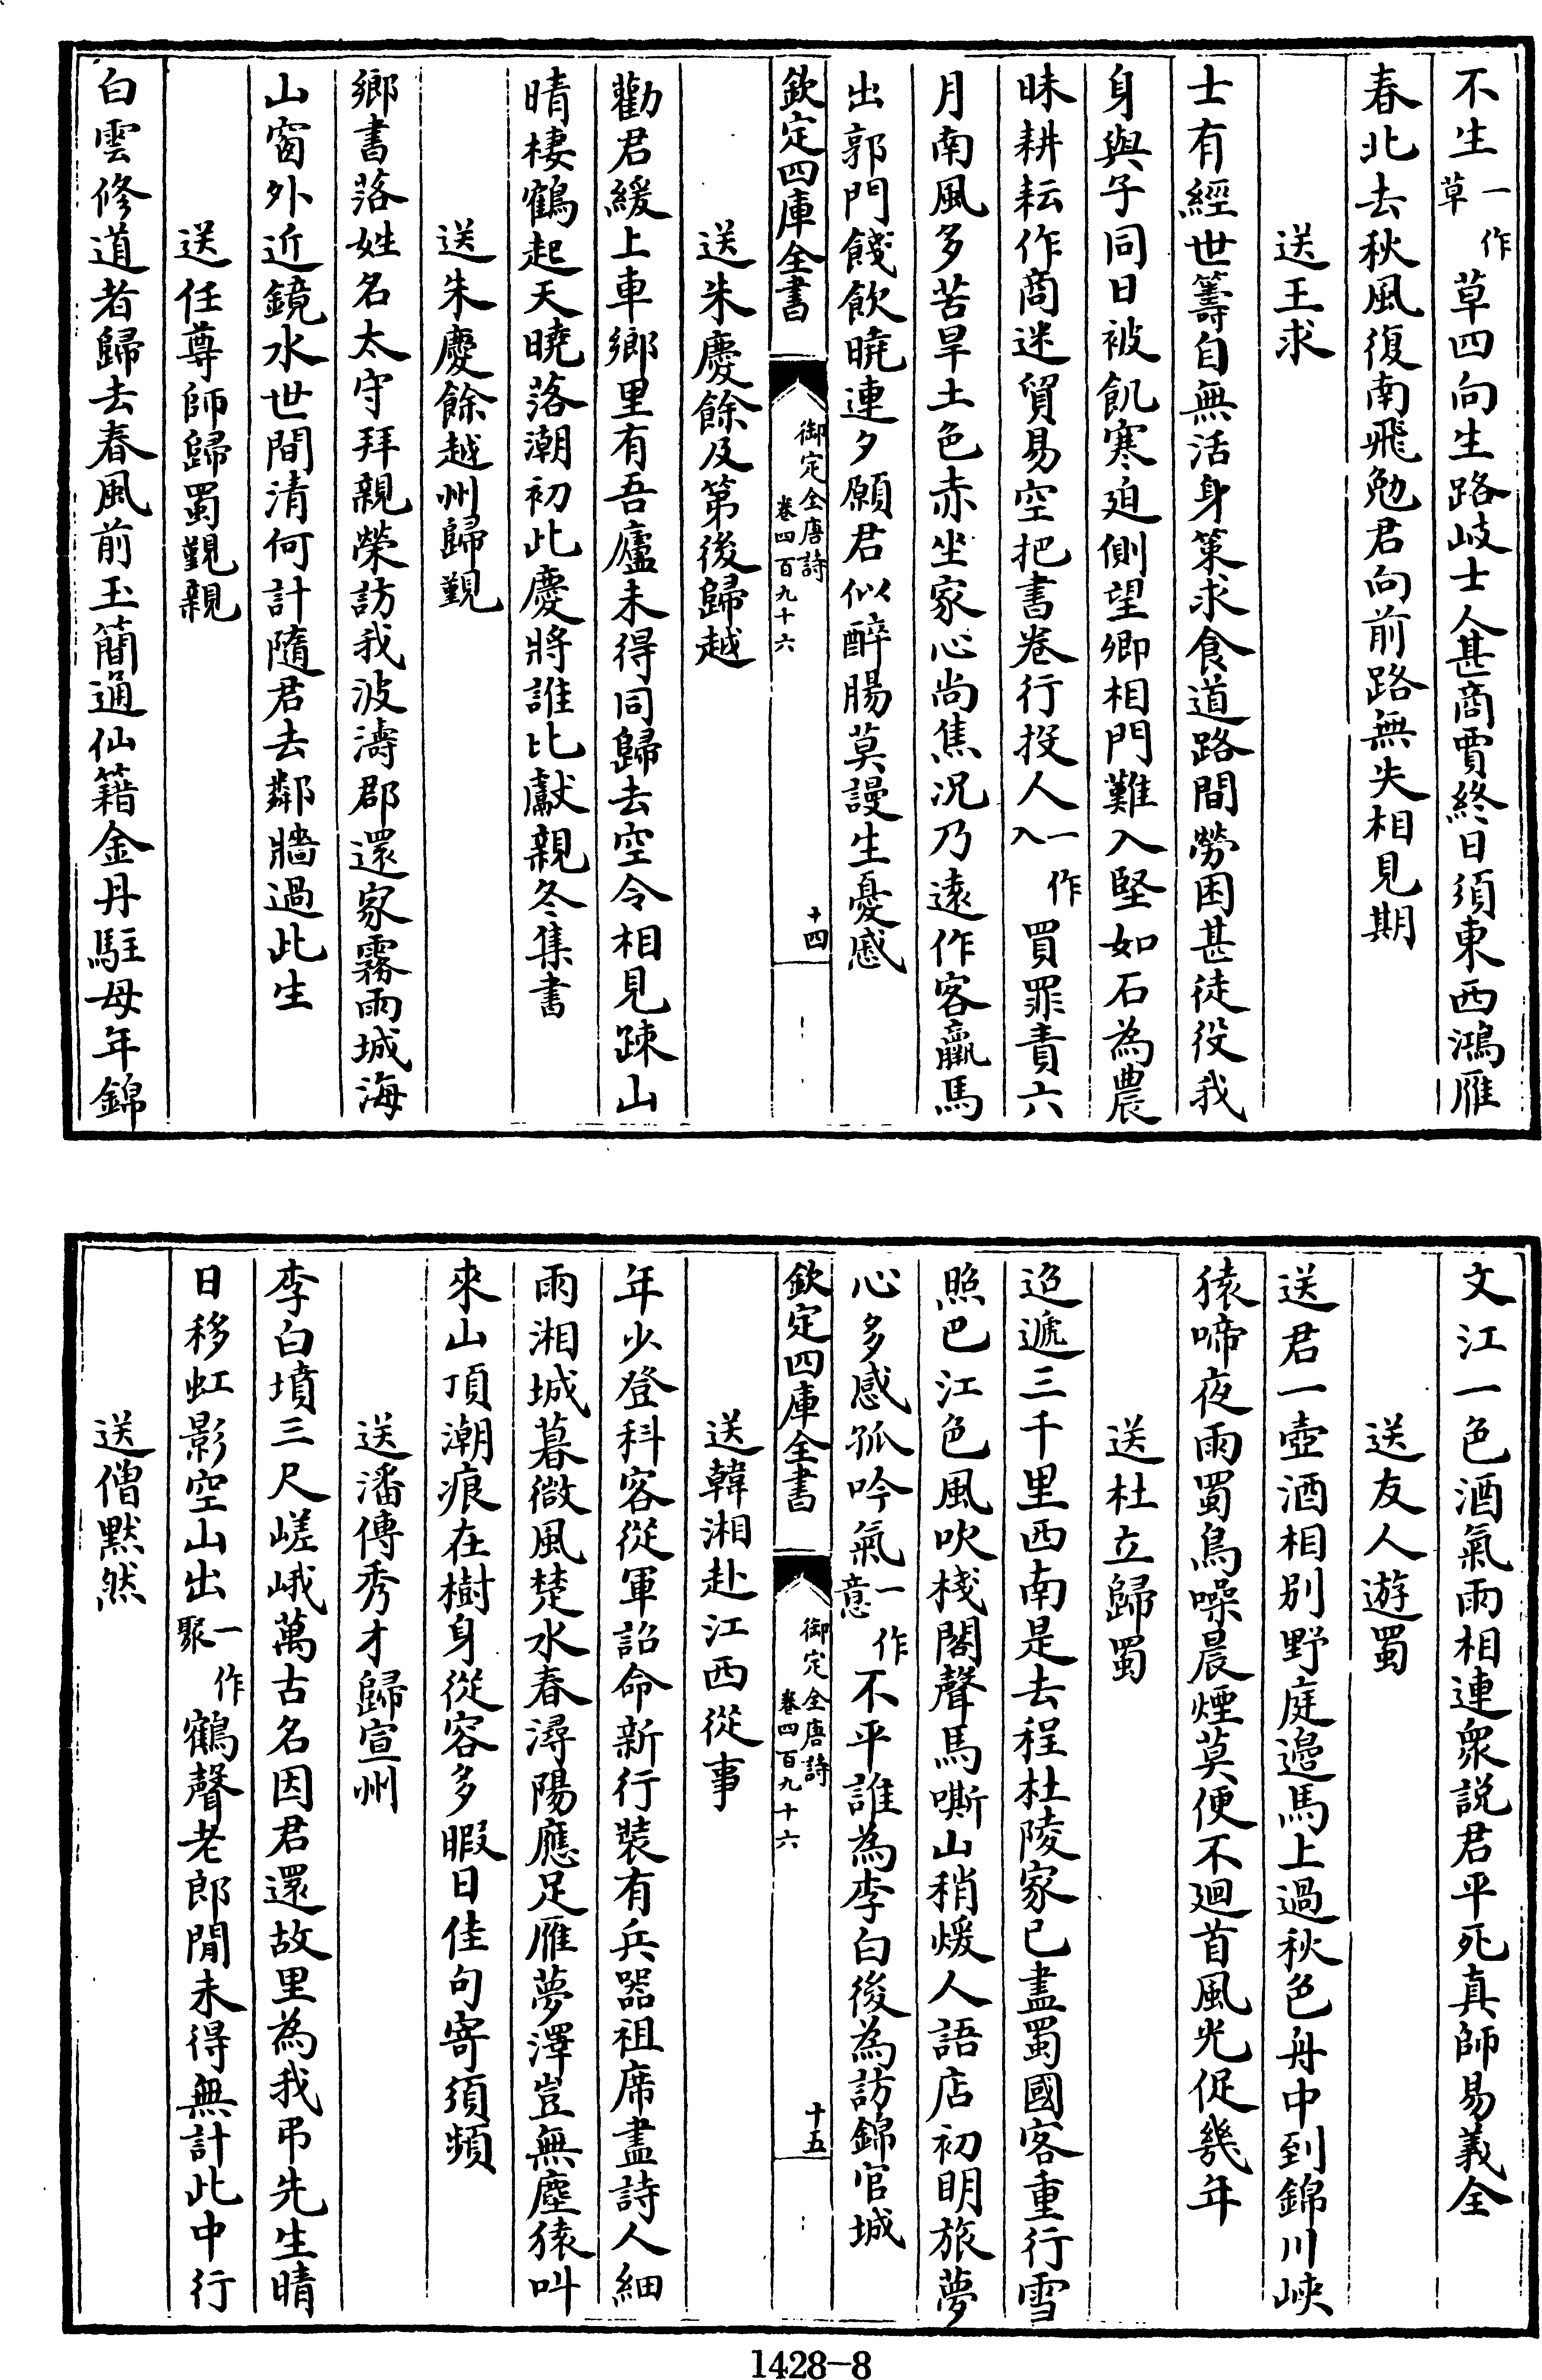 不生一作草草四向生路岐士人甚商賈終日須東西鴻雁
春北去秋風復南飛勉君向前路無失相見期
送王求
士有經世籌自無活身策求食道路間勞困甚徒役我
身與子同日被飢寒迫側望卿相門難入堅如石為農
昧耕耘作商迷貿易空把書卷行投人一作入買罪責六
月南風多苦旱土色赤坐家心尚焦况乃遠作客羸馬
出郭門餞飲曉連夕願君似醉腸莫謾生憂慼
欽定四庫全書 御定全唐詩 卷四百九十六 十四
送朱慶餘及第後歸越
勸君緩上車鄉里有吾廬未得同歸去空令相見疎山
晴棲鶴起天曉落潮初此慶將誰比獻親冬集書
送朱慶餘越州歸覲
鄉書落姓名太守拜親榮訪我波濤郡還家霧雨城海
山窗外近鏡水世間清何計隨君去鄰牆過此生
送任尊師歸蜀覲親
白雲修道者歸去春風前玉簡通仙籍金丹駐母年錦
文江一色酒氣雨相連衆説君平死真師易義全
送友人遊蜀
送君一壺酒相別野庭邉馬上過秋色舟中到錦川峽
猿啼夜雨蜀鳥噪晨煙莫便不迴首風光促幾年
送杜立歸蜀
迢遞三千里西南是去程杜陵家已盡蜀國客重行雪
照巴江色風吹棧閣聲馬嘶山稍煖人語店初明旅夢
心多感孤吟氣一作意不平誰為李白後為訪錦官城
欽定四庫全書 御定全唐詩 卷四百九十六 十五
送韓湘赴江西從事
年少登科客從軍詔命新行裝有兵器祖席盡詩人細
雨湘城暮微風楚水春潯陽應足雁夢澤豈無塵猿叫
來山頂潮痕在樹身從容多暇日佳句寄須頻
送潘傳秀才歸宣州
李白墳三尺嵯峨萬古名因君還故里為我弔先生晴
日移虹影空山出一作聚鶴聲老郎閒未得無計此中行
送僧默然
1428-8